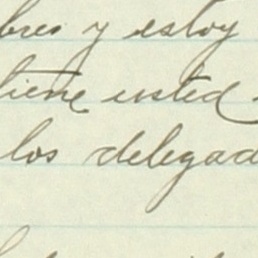 bres y estoy
tiene usted
los delegad